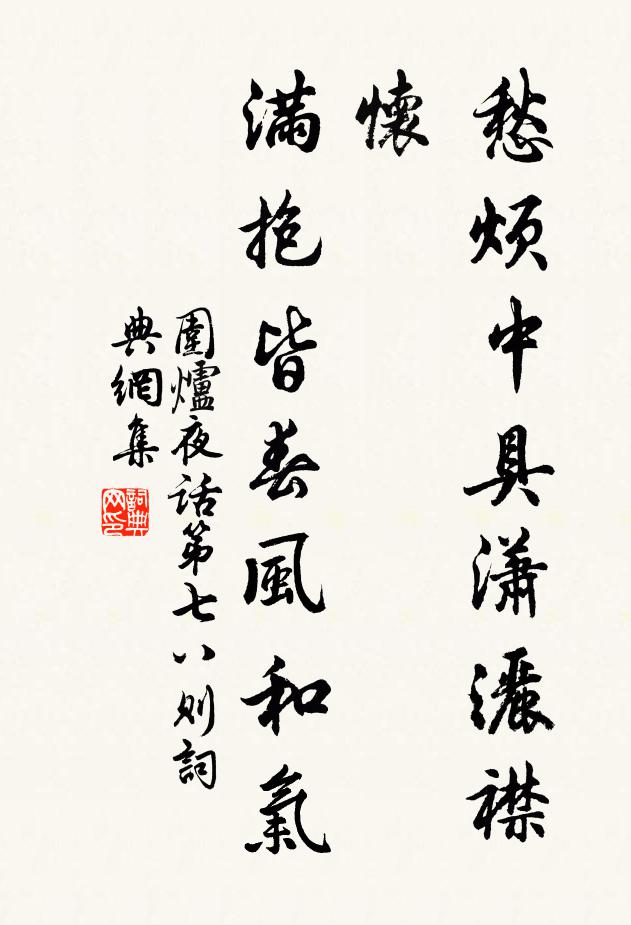 愁煩中具瀟灑襟
懷
滿抱皆春風和氣
圍爐夜話第七八則詞
典網集
詞典網印